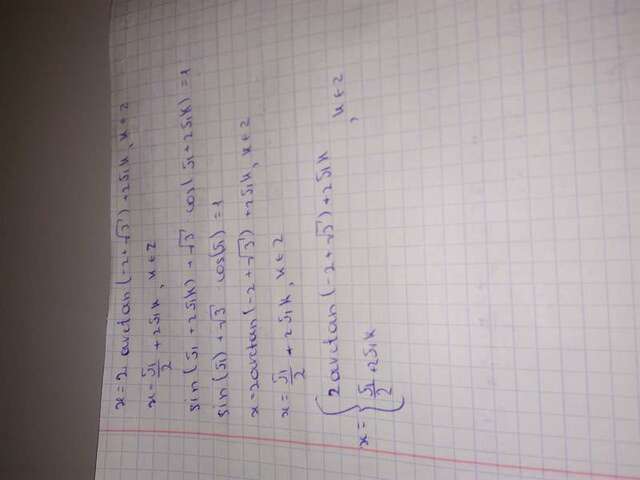 x = 2 arctan(-2+√3)+2πk, k∈Z
x = π/2 + 2πk, k∈Z
sin(π + 2πk) + √3 cos(π+2πk) = 1
sin(π) + √3 cos(π) = 1
x = 2arctan(-2+√3) +2πk, k∈Z
x = π/2 + 2πk, k∈Z
x = { 2arctan(-2+√3)+2πk
π/2 + 2πk , k∈Z